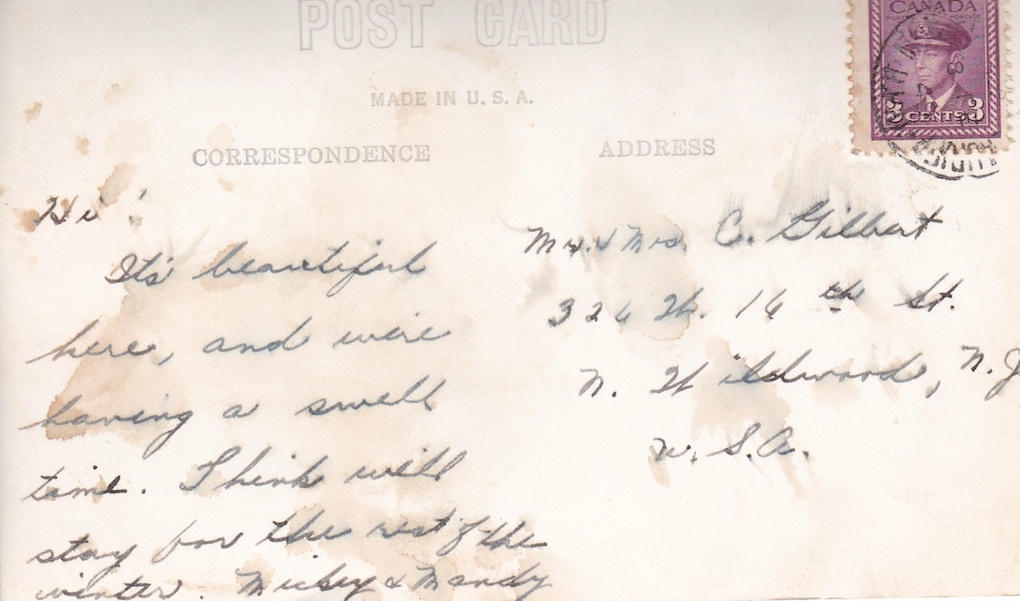 POST CARD
CANADA
MADE IN U. S. A.
3 CENTS 3
CORRESPONDENCE
ADDRESS
Hi!
It's beautiful
here, and we're
having a swell
time. Think we'll
stay for the rest of the
winter. Mickey & Mandy
Mr. & Mrs. C. Gilbert
324 W. 14th St.
N. Wildwood, N.J.
U.S.A.